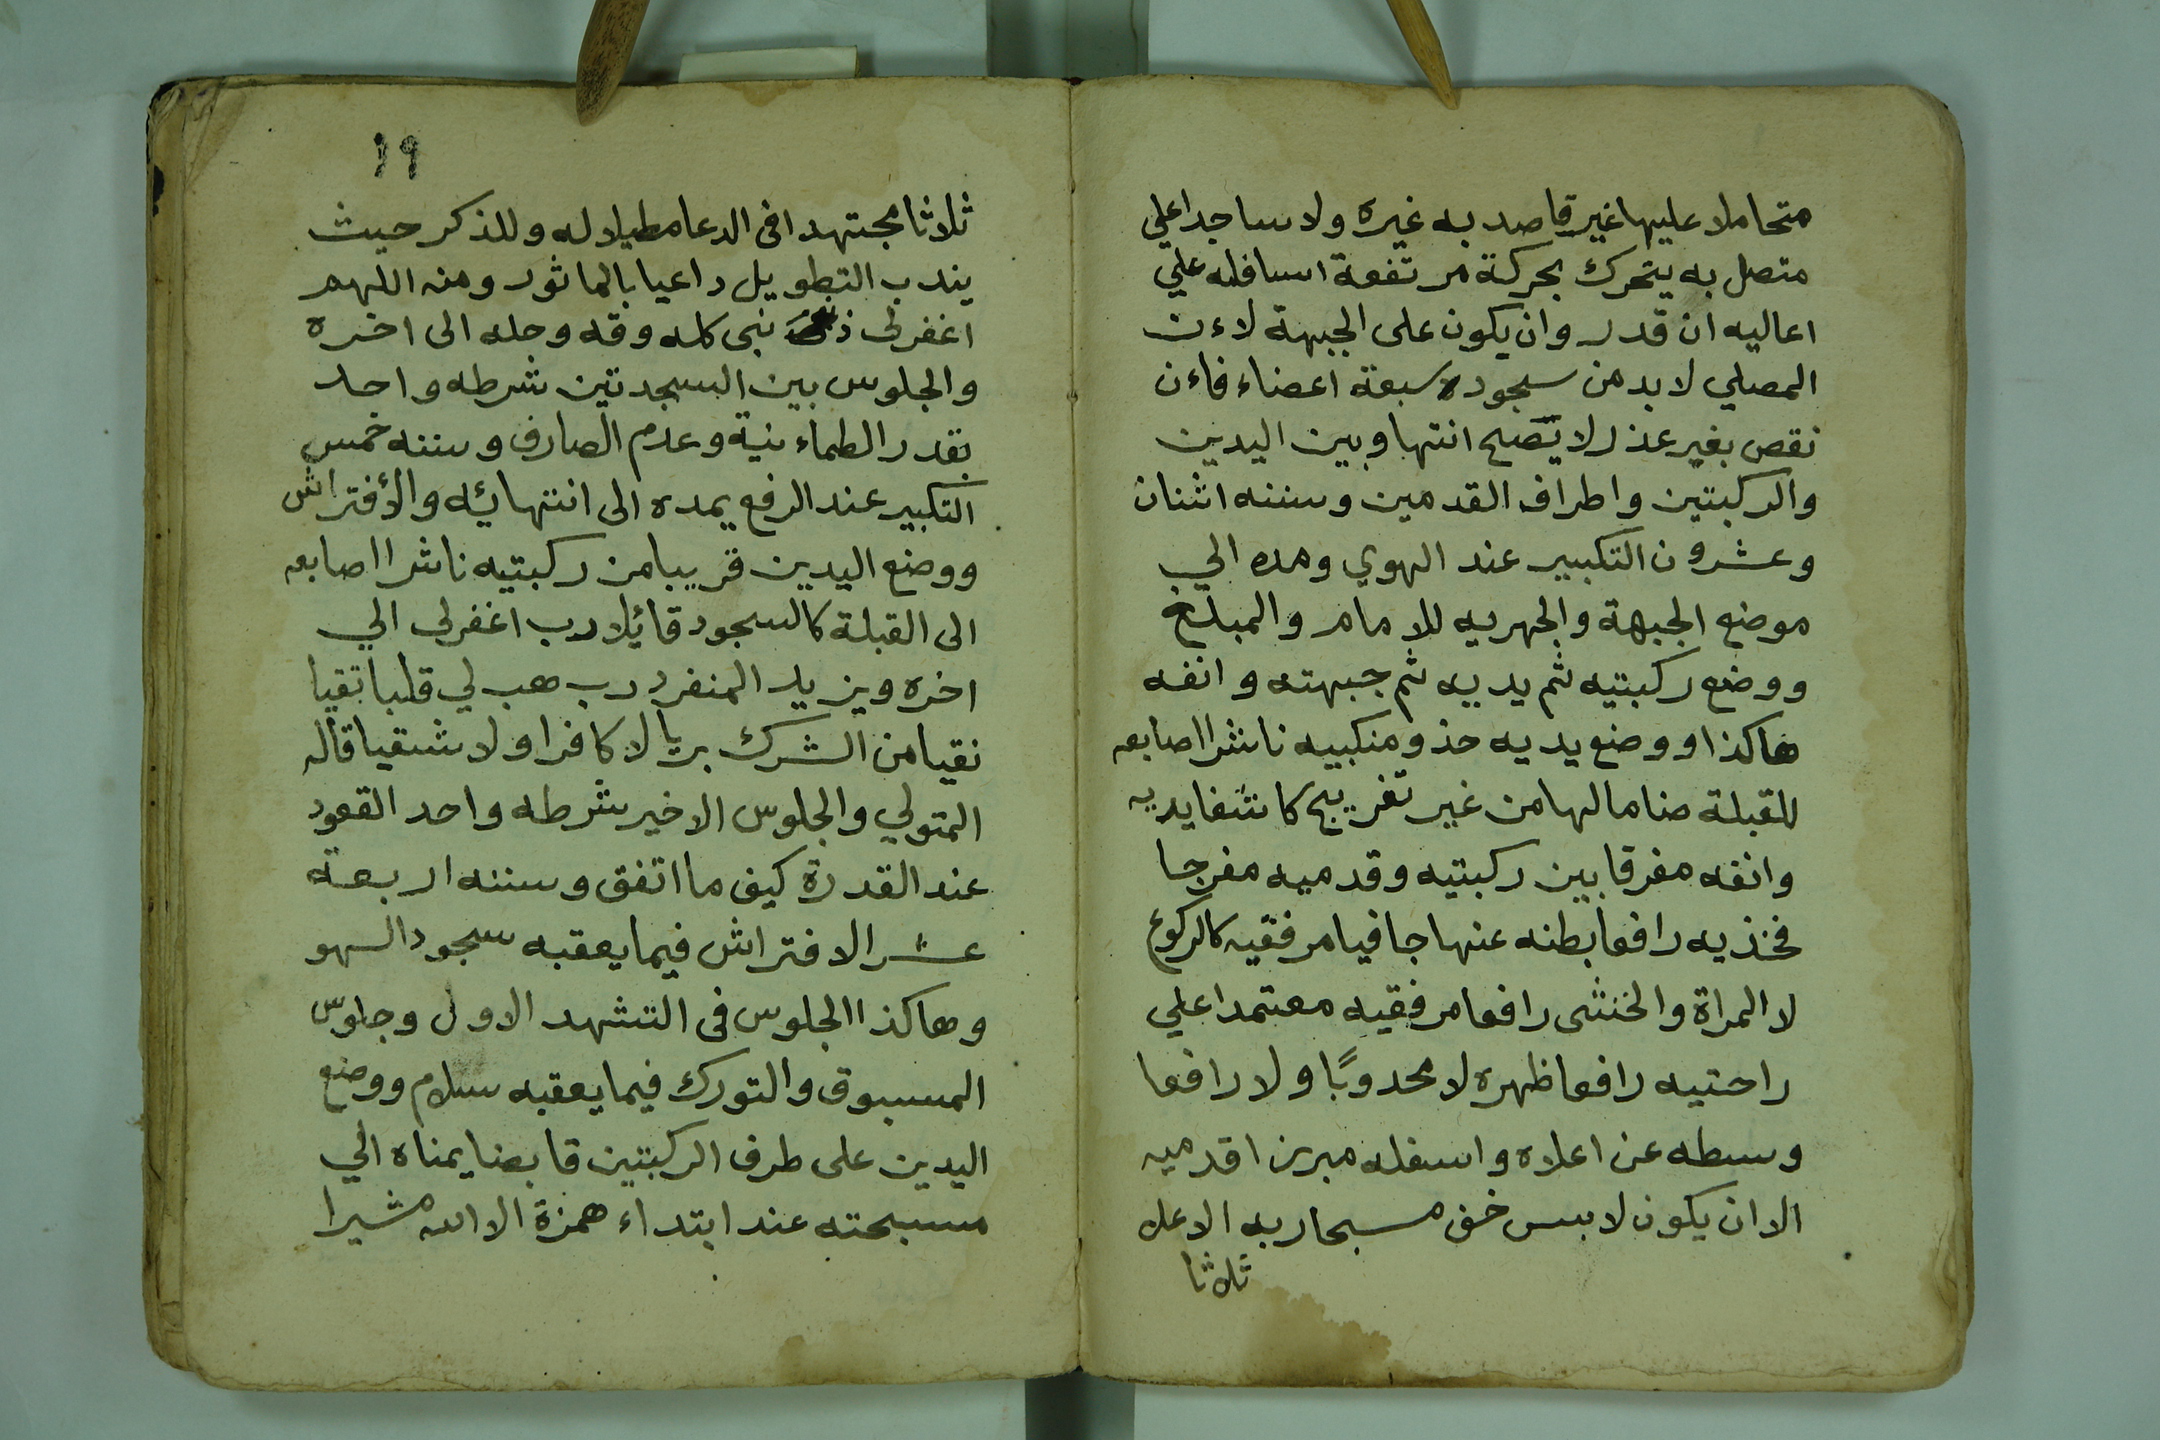 متحاملا عليها غير قاصد به غيره ولا ساجدا علي
متصل به يتحرك بحركة مرتفعة اسافله علي
اعاليه ان قدر وان يكون على الجبهة لاءن
المصلي لا بد من سجوده سبعة اعضاء فاءن
نقص بغير عذر لا يصح انتها وبين اليدين
والركبتين واطراف القدمين وسننه اثنان
وعشرون التكبير عند الهوي ومده الي
موضع الجبهة والجهر به للامام والمبلغ
ووضع ركبتيه ثم يديه ثم جبهته وانفه
هاكذا ووضع يديه حذو منكبيه ناشرا اصابعه
للقبلة ضاما لها من غير تفريج كاشفا يديه
وانفه مفرقا بين ركبتيه وقدميه مفرجا
فخذيه رافعا بطنه عنها جافيا مرفقيه كالركوع
لا المراة والخنثى رافعا مرفقيه معتمدا علي
راحتيه رافعا ظهره لا محدوبًا ولا رافعا
وسطه عن اعلاه واسفله مبرزا قدميه
الا ان يكون لابس خف مسبحا ربه الاعلا
ثلاثا
١٩
ثلاثا مجتهدا في الدعا مطيلا له وللذكر حيث
يندب التطويل داعيا بالماثور ومنه اللهم
اغفرلى ذنبى كله دقه وجله الى اخره
والجلوس بين السجدتين شرطه واحد
بقدر الطماءنية وعدم الصارف وسننه خمس
التكبير عند الرفع يمده الى انتهائه والأفتراش
ووضع اليدين قريبا من ركبتيه ناشرا اصابعه
الى القبلة كالسجود قائلا رب اغفرلى الي
اخره ويزيد المنفرد رب هب لي قلبا تقيا
نقيا من الشرك بريا لا كافرا ولا شقيا قاله
المتولي والجلوس الاخير شرطه واحد القعود
عند القدرة كيف ما اتفق وسننه اربعة
عشر الافتراش فيما يعقبه سجود السهو
وهاكذا الجلوس فى التشهد الاول وجلوس
المسبوق والتورك فيما يعقبه سلام ووضع
اليدين على طرف الركبتين قابضا يمناه الي
مسبحته عند ابتداء همزة الا الله مشيرا